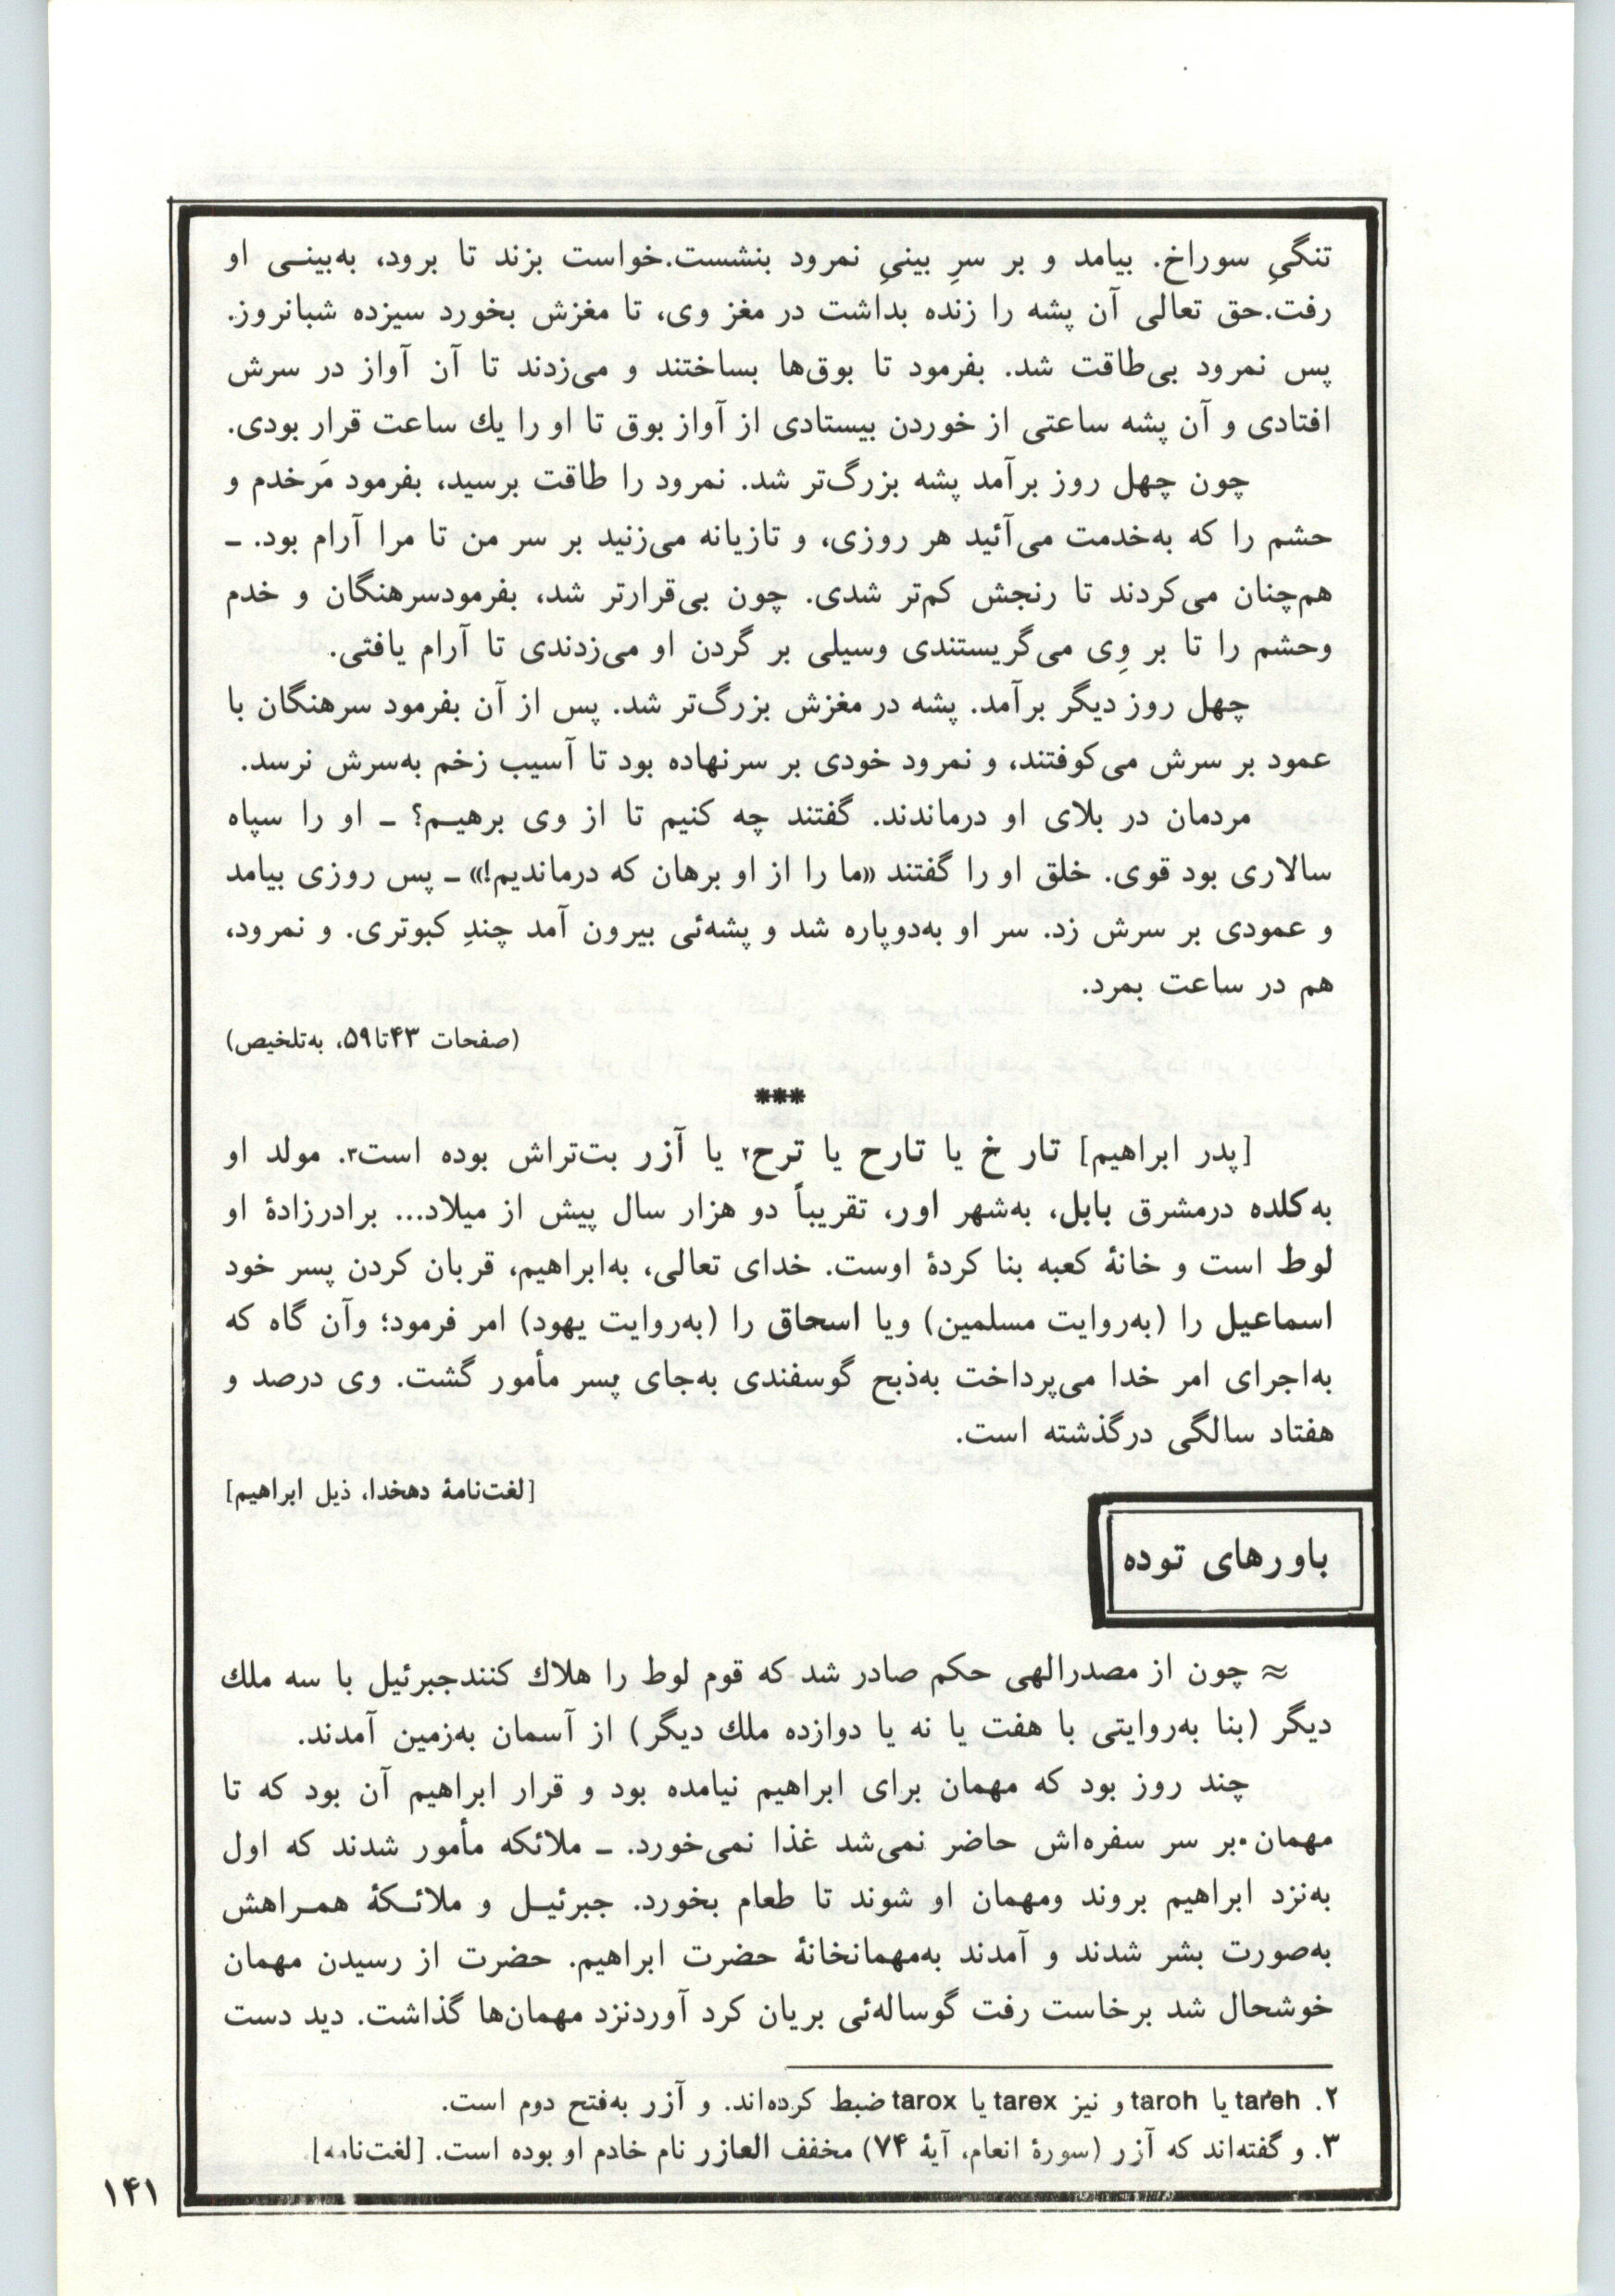 تنگیِ سوراخ. بیامد و بر سرِ بینیِ نمرود بنشست.خواست بزند تا برود، به‌بینـی او
رفت.حق تعالی آن پشه را زنده بداشت در مغز وی، تا مغزش بخورد سیزده شبانروز.
پس نمرود بی‌طاقت شد. بفرمود تا بوق‌ها بساختند و می‌زدند تا آن آواز در سرش
افتادی و آن پشه ساعتی از خوردن بیستادی از آواز بوق تا او را یك ساعت قرار بودی.
چون چهل روز برآمد پشه بزرگ‌تر شد. نمرود را طاقت برسید، بفرمود مَرخدم و
حشم را که به‌خدمت می‌آئید هر روزی، و تازیانه می‌زنید بر سر من تا مرا آرام بود. ـ
هم‌چنان می‌کردند تا رنجش کم‌تر شدی. چون بی‌قرارتر شد، بفرمودسرهنگان و خدم
وحشم را تا بر وِی می‌گریستندی وسیلی بر گردن او می‌زدندی تا آرام یافتی.
چهل روز دیگر برآمد. پشه در مغزش بزرگ‌تر شد. پس از آن بفرمود سرهنگان با
عمود بر سرش می‌کوفتند، و نمرود خودی بر سرنهاده بود تا آسیب زخم به‌سرش نرسد.
مردمان در بلای او درماندند. گفتند چه کنیم تا از وی برهیـم؟ ـ او را سپاه
سالاری بود قوی. خلق او را گفتند «ما را از او برهان که درماندیم!» ـ پس روزی بیامد
و عمودی بر سرش زد. سر او به‌دوپاره شد و پشه‌ئی بیرون آمد چندِ کبوتری. و نمرود،
هم در ساعت بمرد.
(صفحات ۴۳تا۵۹، به‌تلخیص)
***
[پدر ابراهیم] تار خ یا تارح یا ترح۲ یا آزر بت‌تراش بوده است۳. مولد او
به‌کلده درمشرق بابل، به‌شهر اور، تقریباً دو هزار سال پیش از میلاد... برادرزادهٔ او
لوط است و خانهٔ کعبه بنا کردهٔ اوست. خدای تعالی، به‌ابراهیم، قربان کردن پسر خود
اسماعیل را (به‌روایت مسلمین) ویا اسحاق را (به‌روایت یهود) امر فرمود؛ وآن گاه که
به‌اجرای امر خدا می‌پرداخت به‌ذبح گوسفندی به‌جای پسر مأمور گشت. وی درصد و
هفتاد سالگی درگذشته است.
[لغت‌نامهٔ دهخدا، ذیل ابراهیم]
باورهای توده
≈ چون از مصدرالهی حکم صادر شد که قوم لوط را هلاك کنندجبرئیل با سه ملك
دیگر (بنا به‌روایتی با هفت یا نه یا دوازده ملك دیگر) از آسمان به‌زمین آمدند.
چند روز بود که مهمان برای ابراهیم نیامده بود و قرار ابراهیم آن بود که تا
مهمان بر سر سفره‌اش حاضر نمی‌شد غذا نمی‌خورد. ـ ملائکه مأمور شدند که اول
به‌نزد ابراهیم بروند ومهمان او شوند تا طعام بخورد. جبرئیـل و ملائـکهٔ همـراهش
به‌صورت بشر شدند و آمدند به‌مهمانخانهٔ حضرت ابراهیم. حضرت از رسیدن مهمان
خوشحال شد برخاست رفت گوساله‌ئی بریان کرد آوردنزد مهمان‌ها گذاشت. دید دست
۲. tareh یا taroh و نیز tarex یا tarox ضبط کرده‌اند. و آزر به‌فتح دوم است.
۳. و گفته‌اند که آزر (سورهٔ انعام، آیهٔ ۷۴) مخفف العازر نام خادم او بوده است. [لغت‌نامه].
۱۴۱